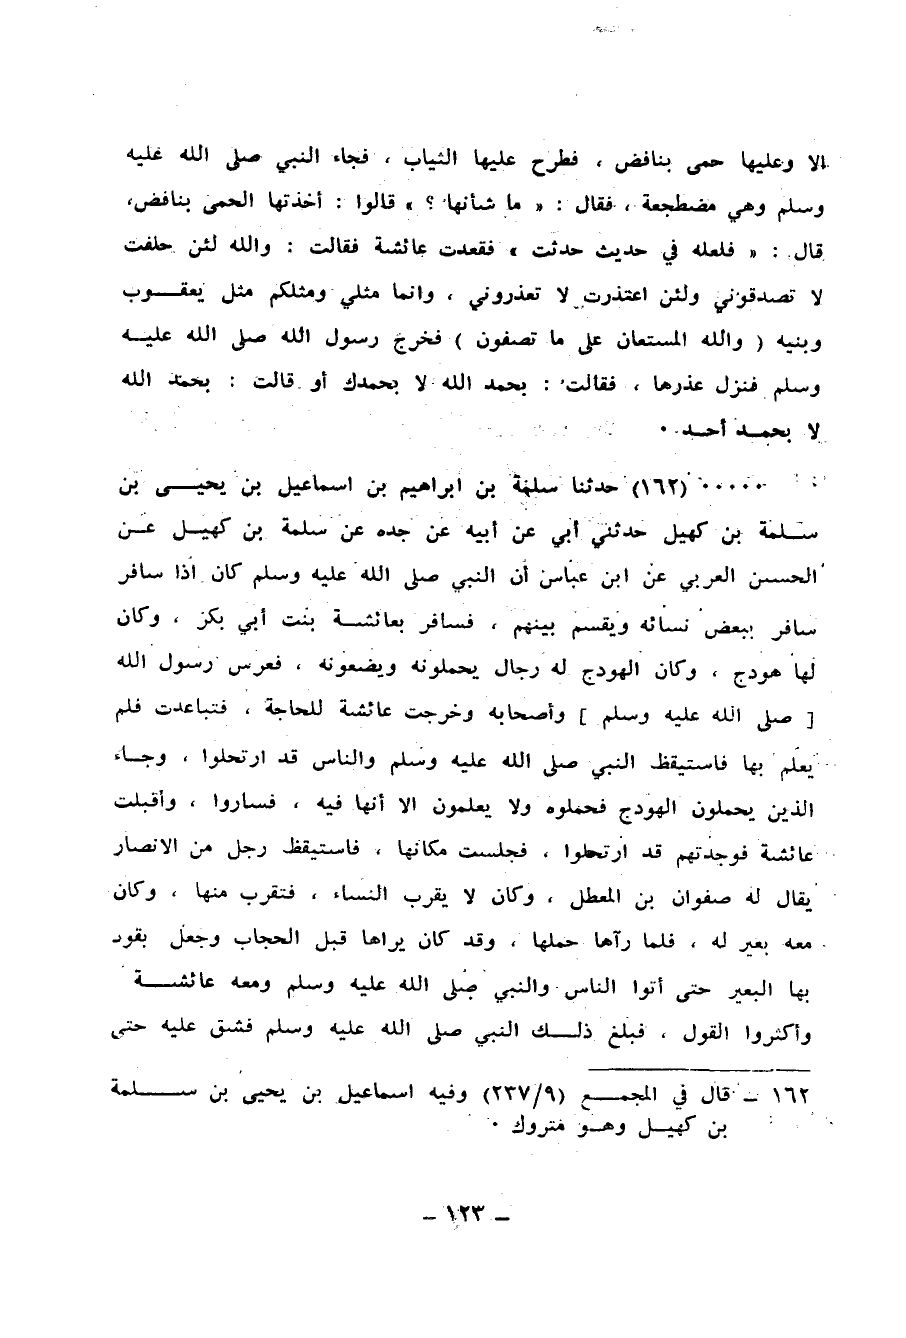 الا وعليها حمى بنافض ، فطرح عليها الثياب ، فجاء النبي صلى الله عليه
وسلم وهي مضطجعة ، فقال : « ما شأنها ؟ » قالوا : أخذتها الحمى بنافض،
قال : « فلعله في حديث حدثت » فقعدت عائشة فقالت : والله لئن حلفت
لا تصدقوني ولئن اعتذرت لا تعذروني ، وانما مثلي ومثلكم مثل يعقــوب
وبنيه ( والله المستعان على ما تصفون ) فخرج رسول الله صلى الله عليــه
وسلم فنزل عذرها ، فقالت : بحمد الله لا بحمدك أو قالت : بحمد الله
لا بحمــد أحــد ٠
٠٠٠٠٠ (١٦٢) حدثنا سلمة بن ابراهيم بن اسماعيل بن يحيــى بن
سـلمة بن كهيل حدثني أبي عن أبيه عن جده عن سلمة بن كهيــل عــن
الحسن العربي عن ابن عباس أن النبي صلى الله عليه وسلم كان اذا سافر
سافر ببعض نسائه ويقسم بينهم ، فسافر بعائشــة بنت أبي بكر ، وكان
لها هودج ، وكان الهودج له رجال يحملونه ويضعونه ، فعرس رسول الله
[ صلى الله عليه وسلم ] وأصحابه وخرجت عائشة للحاجة ، فتباعدت فلم
يعلم بها فاستيقظ النبي صلى الله عليه وسلم والناس قد ارتحلوا ، وجــاء
الذين يحملون الهودج فحملوه ولا يعلمون الا أنها فيه ، فساروا ، وأقبلت
عائشة فوجدتهم قد ارتحلوا ، فجلست مكانها ، فاستيقظ رجل من الانصار
يقال له صفوان بن المعطل ، وكان لا يقرب النساء ، فتقرب منها ، وكان
معه بعير له ، فلما رآها حملها ، وقد كان يراها قبل الحجاب وجعل يقود
بها البعير حتى أتوا الناس والنبي صلى الله عليه وسلم ومعه عائشــة
وأكثروا القول ، فبلغ ذلــك النبي صلى الله عليه وسلم فشق عليه حتى
١٦٢ ــ قال في المجمــع (٢٣٧/٩) وفيه اسماعيل بن يحيى بن ســلمة
بن كهيــل وهــو متروك ٠
ــ ١٢٣ ــ